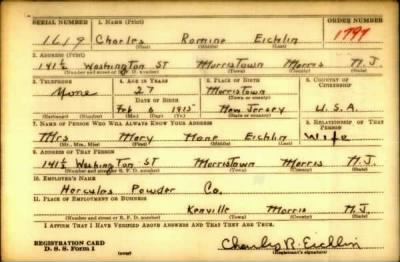 SERIAL NUMBER 1. NAME (Print) ORDER NUMBER
1619 Charles Romine Eichlin 1797
(First) (Middle) (Last)
2. ADDRESS (Print)
141½ Washington ST Morristown Morris N.J.
(Number and street or R. F. D. number) (Town) (County) (State)
3. TELEPHONE 4. AGE IN YEARS 5. PLACE OF BIRTH 6. COUNTRY OF CITIZENSHIP
None 27 Morristown
DATE OF BIRTH (Town or county)
Feb 6 1915 New Jersey U.S.A.
(Exchange) (Number) (Mo.) (Day) (Yr.) (State or country)
7. NAME OF PERSON WHO WILL ALWAYS KNOW YOUR ADDRESS 8. RELATIONSHIP OF THAT PERSON
Mrs Mary Eichlin Wife
(Mr., Mrs., Miss) (First) (Middle) (Last)
9. ADDRESS OF THAT PERSON
141½ Washington ST Morristown Morris N.J.
(Number and street or R. F. D. number) (Town) (County) (State)
10. EMPLOYER'S NAME
Hercules Powder Co.
11. PLACE OF EMPLOYMENT OR BUSINESS
Kenville Morris N.J.
(Number and street or R. F. D. number) (Town) (County) (State)
I AFFIRM THAT I HAVE VERIFIED ABOVE ANSWERS AND THAT THEY ARE TRUE.
REGISTRATION CARD
D. S. S. Form 1 (over) Charles R. Eichlin
(Registrant's signature)